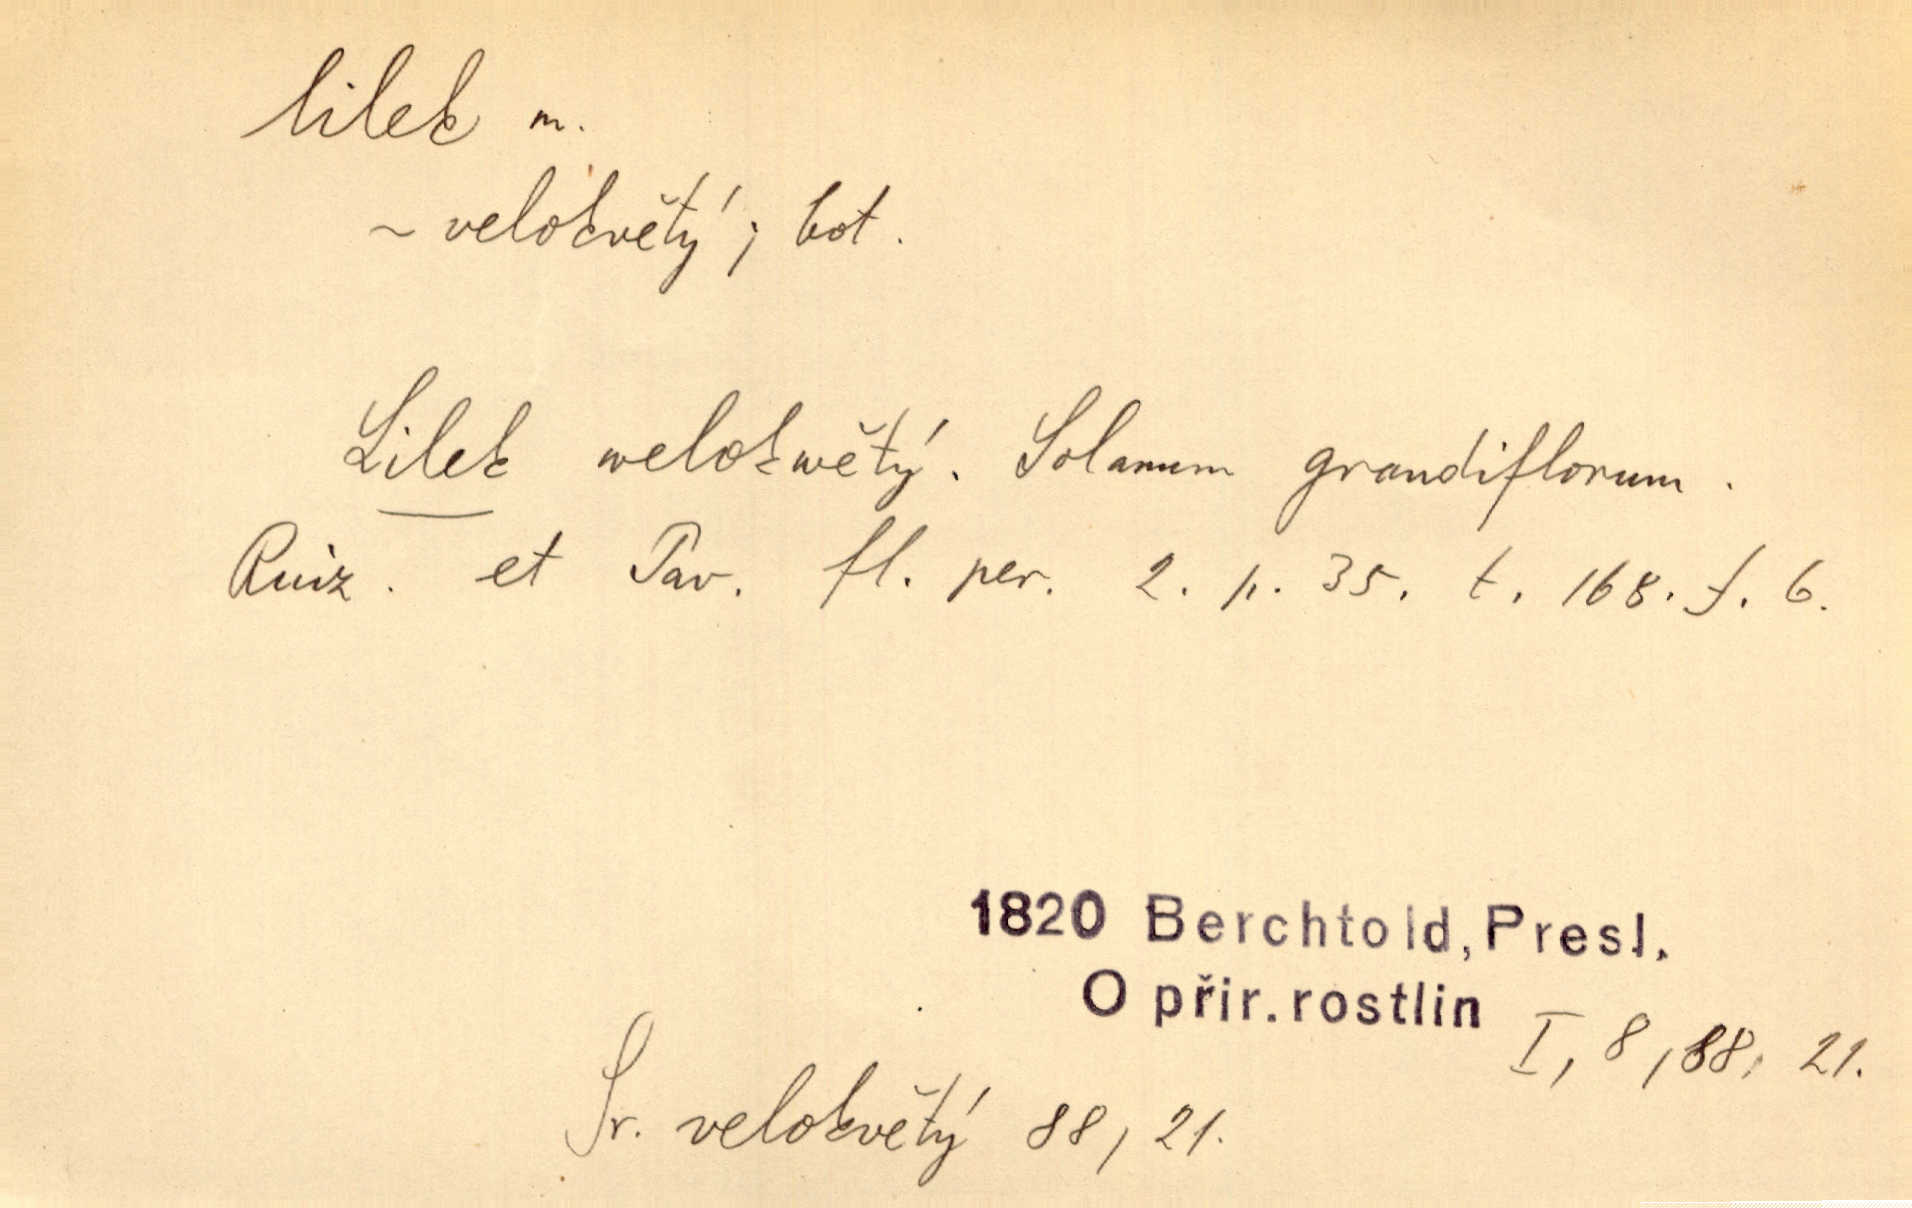 lilek m.
~ velokvětý; bot.
Lilek welokwětý. Solanum grandiflorum.
Ruiz. et Pav. fl. per. 2. p. 35. t. 168. f. 6.
1820 Berchtold, Presl.
O přir. rostlin I, 8, 88, 21.
Sr. velokvětý 88, 21.